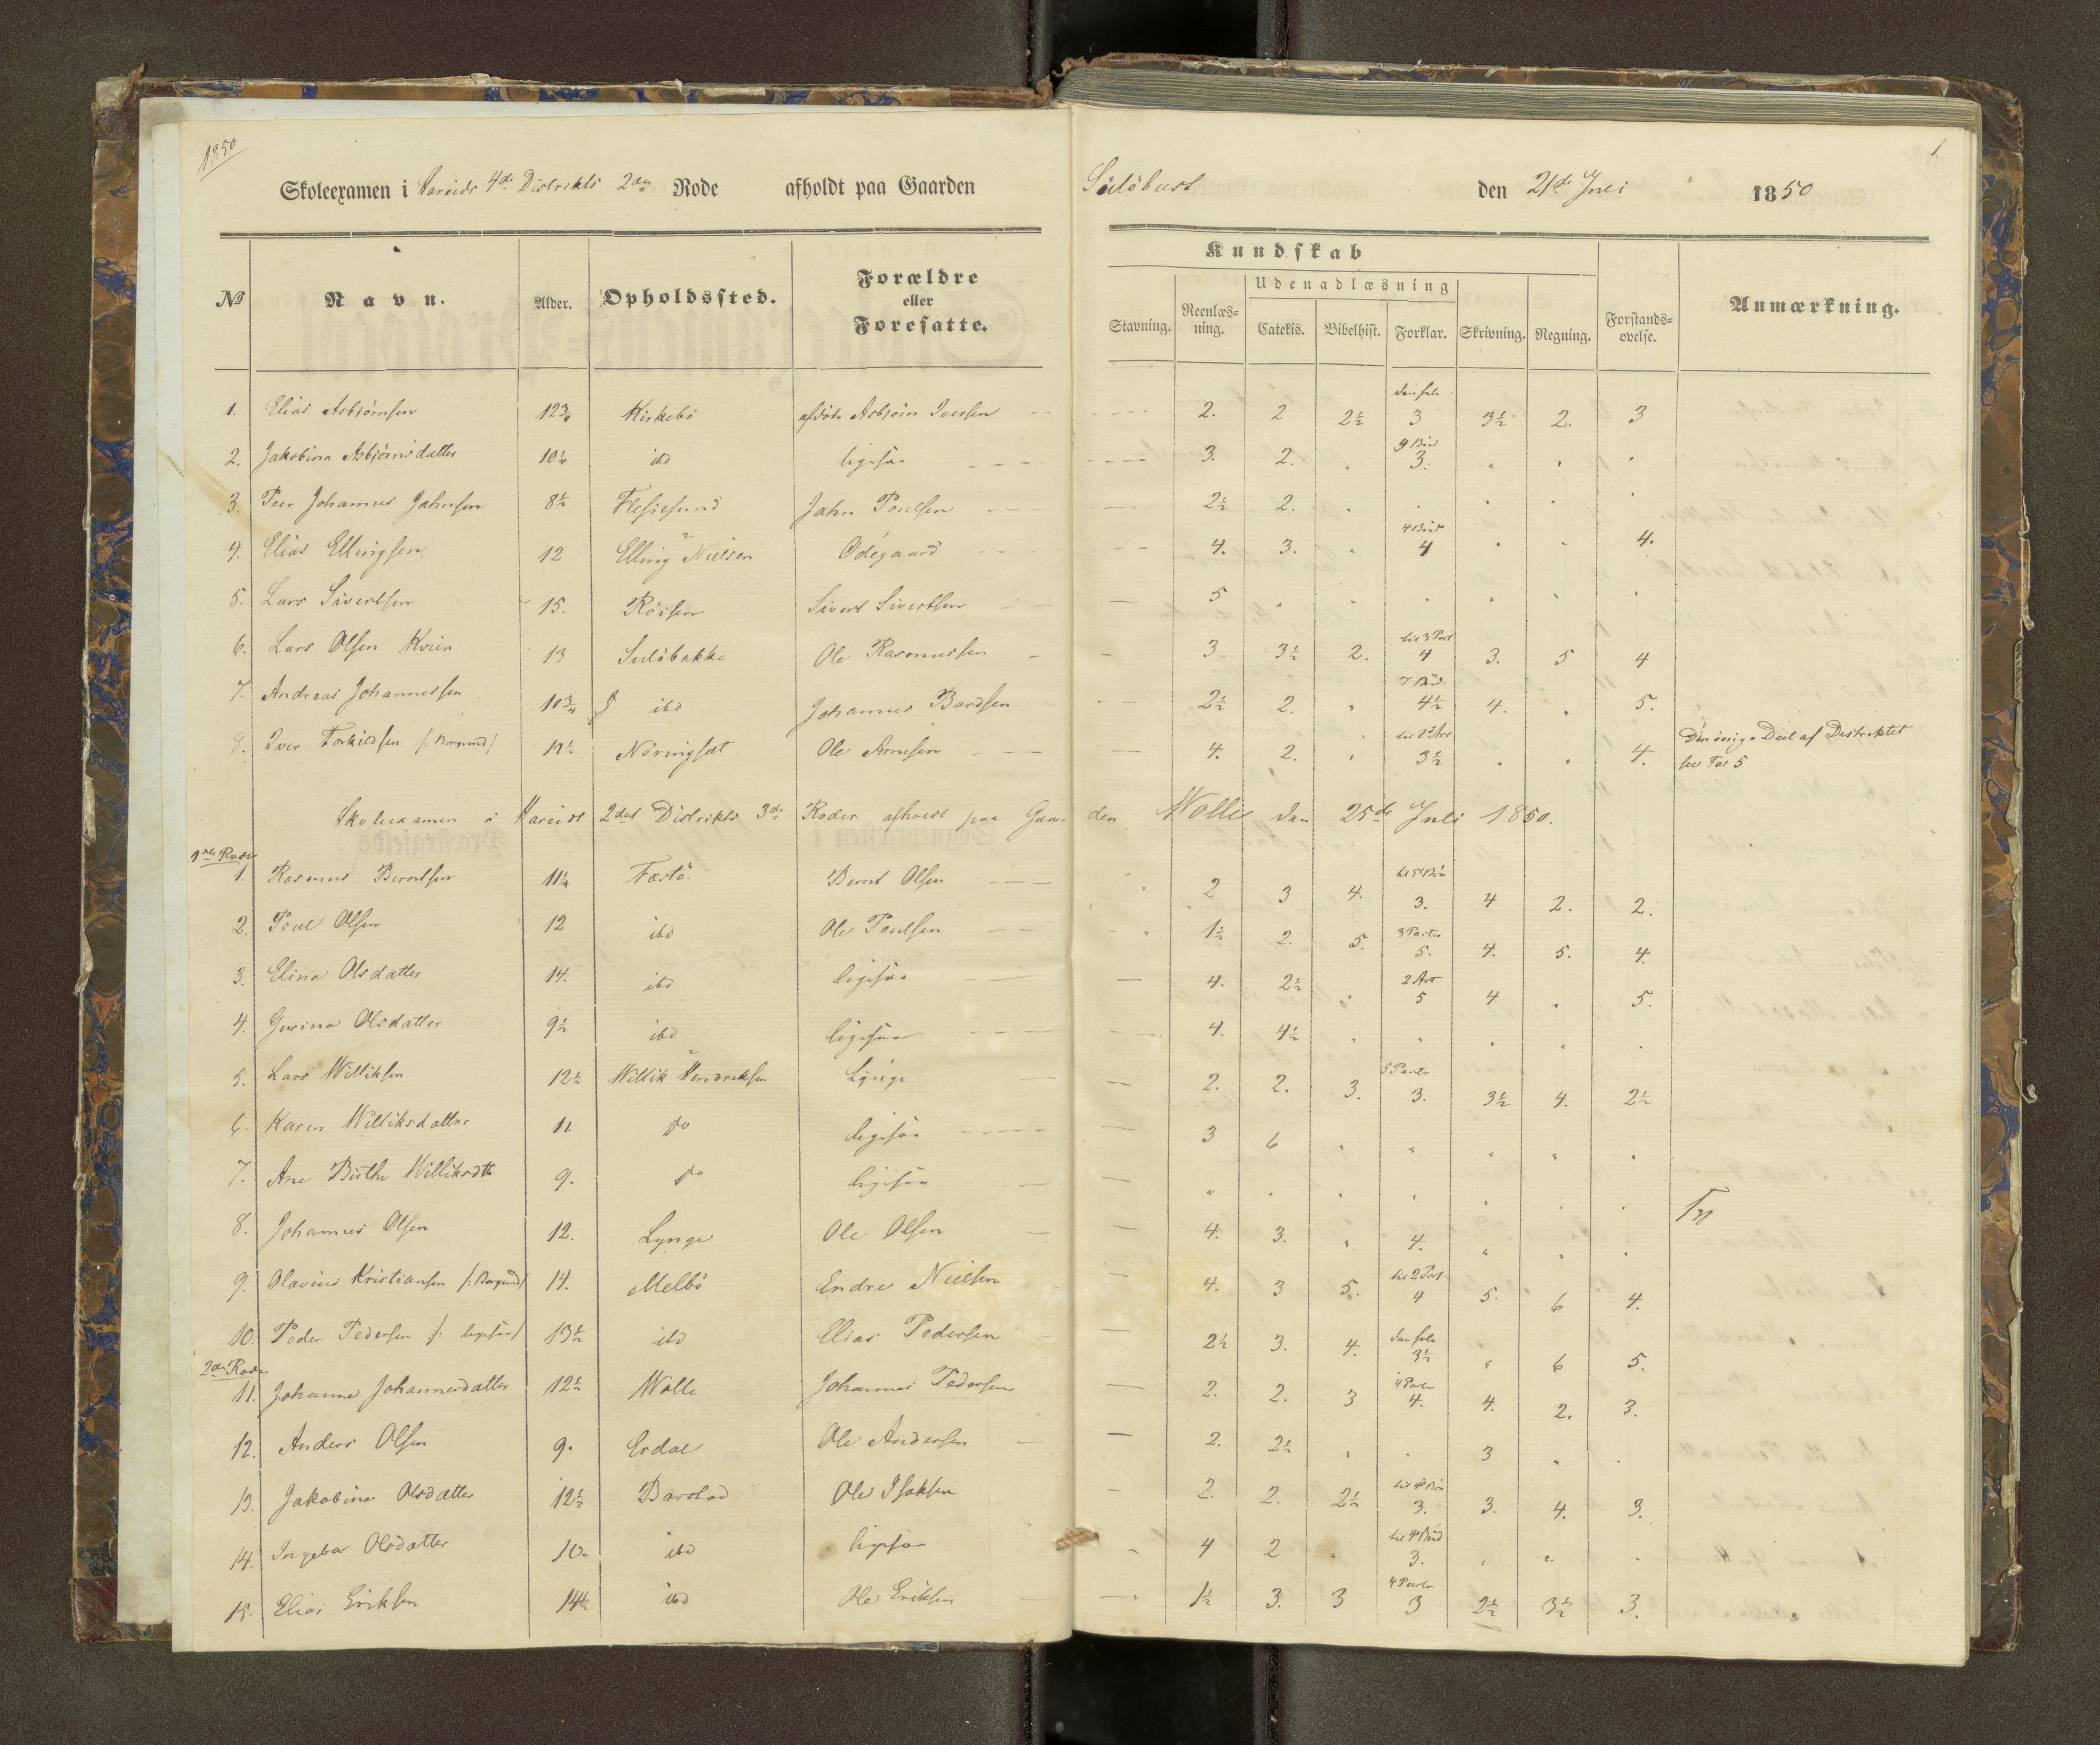 1850
1
Skoleexamen i Hareids 4de Distrikts 2den Rode afholdt paa Gaarden Sulöbust den 21de Juli 1850
№ Navn. Alder. Opholdssted. Forældre eller Foresatte. Kundskab Anmærkning.
Udenadlæsning
Stavning. Reenlæsning. Catekis. Bibelhist. Forklar. Skrivning. Regning. Forstandsovelse.
den hele
1. Elias Asbjörnsen 12¾ Kirkebö afdöde Asbjörn Iversen 2. 2 2½ 3 3½ 2. 3
9 Bud
2. Jakobina Asbjörnsdatter 10¼ ibd ligesaa 3. 2. " 3. " " "
3. Peer Johannes Jahnsen 8½ Flesiesund Jahn Poulsen 2½ 2. " " " " "
4 Bud
4. Elias Ellingsen 12 Elling Nielsen Ödegaard 4. 3. " 4 " " 4.
5. Lars Sivertsen 15. Röisen Sivert Sivertsen 5 " " " " " "
til 3 Part
6. Lars Olsen Kvien 13 Sulöbakke Ole Rasmussen 3. 3½ 2. 4 3. 5 4
7 Bud
7. Andreas Johannessen 10¾ ibd Johannes Bardsen 2½ 2. " 4½ 4. " 5.
til 2 Art
8. Iver Torkildsen /: Borgund/ 12½ Nöringset Ole Arnesen 4. 2. " 3½ " " 4. Den övrige Deel af Distriktet
see Fol 5
Skoleexamen i Hareids 2det Distrikts 3de Roder afholdt paa Gaarden Wolle den 25de Juli 1850.
1ste Rode
til 5 Bön
1. Rasmus Berntsen 11¼ Festö Bernt Olsen 2 3 4. 3. 4 2. 2.
3 Parter
2. Poul Olsen 12 ibd Ole Poulsen 1½ 2. 5. 5. 4. 5. 4.
2 Art
3. Elina Olsdatter 14. ibd ligesaa 4. 2½ " 5 4 " 5.
4. Gurina Olsdatter 9½ ibd ligesaa 4. 4½ " " " " "
5 Parter
5. Lars Williksen 12½ Willik Hendriksen Lynge 2. 2. 3. 3. 3½ 4. 2½
6. Karen Williksdatter 11. do ligesaa 3 6 " " " " "
7. Ane Birthe Williksdtr 9. do ligesaa " " " " " " "
8. Johannes Olsen 12. Lynge Ole Olsen 4. 3. " 4. " " "
til 2 Part
9. Olavius Kristiansen /: Borgund/ 14. Melbö Endre Nielsen 4. 3 5. 4 5. 6 4.
den hele
10. Peder Pedersen /: ligesaa/ 13½ ibd Elias Pedersen 2½ 3. 4. 3½ " 6 5.
2den Rode
4 Parter
11. Johanne Johannesdatter 12½ Wolle Johannes Pedersen 2. 2. 3 4. 4. 2. 3.
12. Anders Olsen 9. Erdal Ole Andersen 2. 2½ " " 3 " "
til 4de Bön
13. Jakobine Olsdatter 12½ Barstad Ole Isaksen 2. 2. 2½ 3. 3. 4. 3.
til 4de Bud
14. Ingebor Olsdatter 10. ibd ligesaa 4 2 " 3. " " "
4 Parter
15. Elias Eriksen 14½ ibd Ole Eriksen 1½ 3. 3 3 2½ 3½ 3.